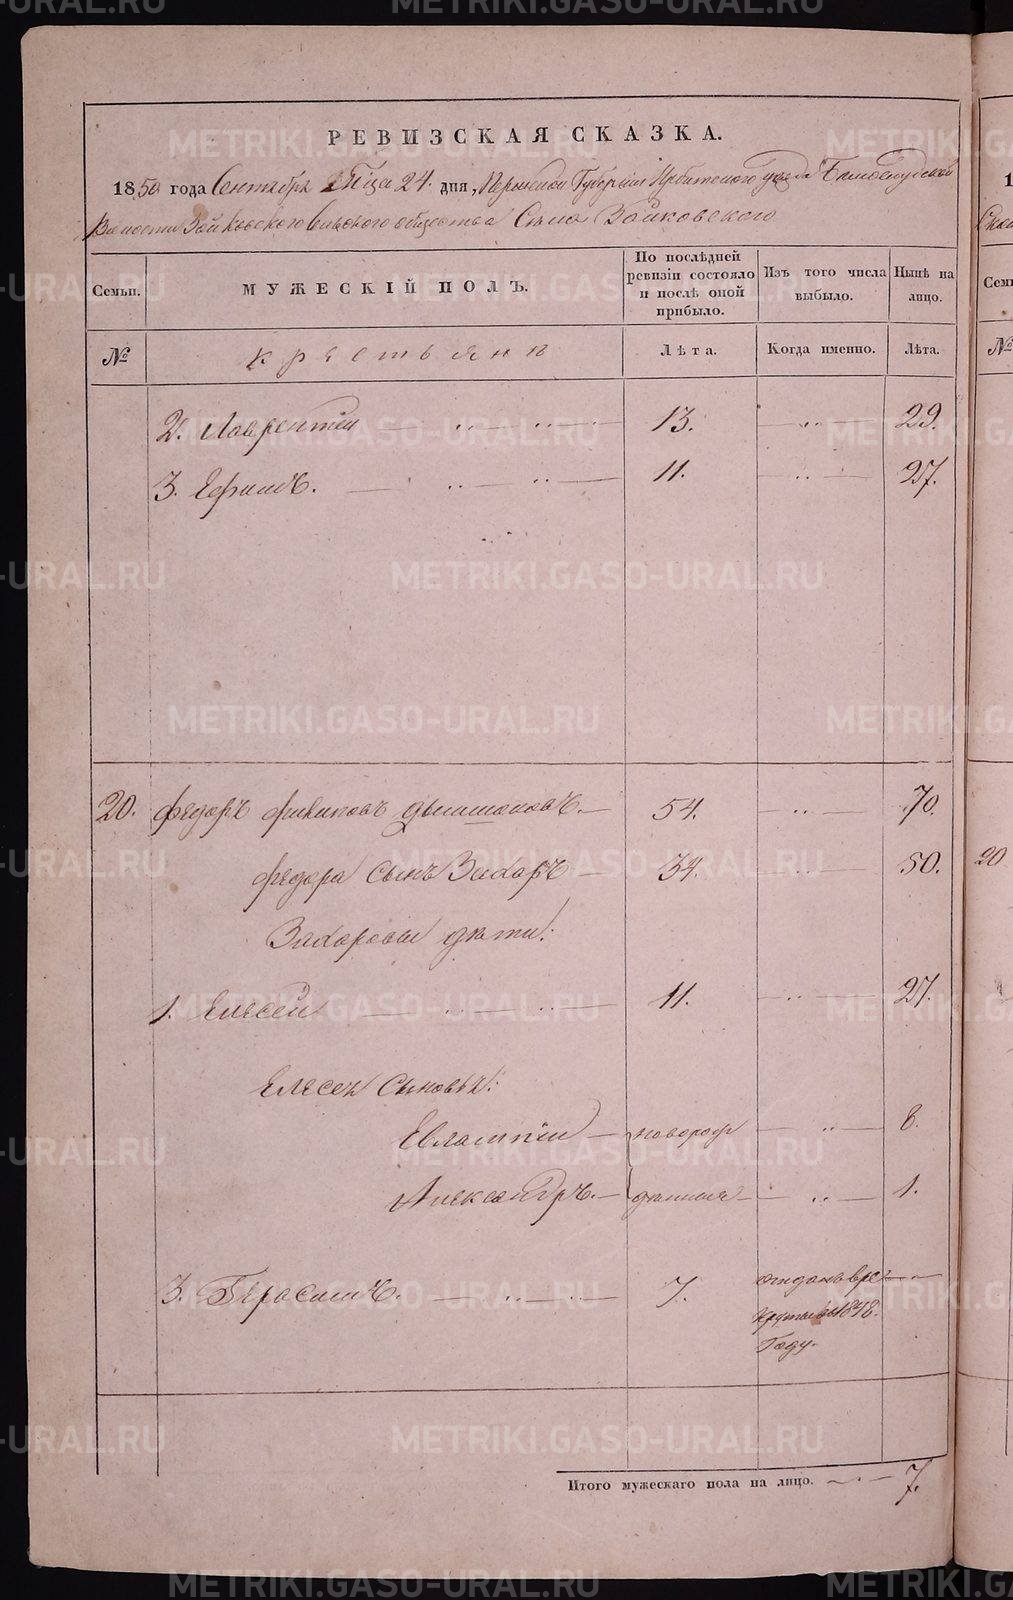 РЕВИЗСКАЯ СКАЗКА.
1850 года Сентября 24 дня, Пермской Губернии Ирбитского уезда Белослудской
Волости Зайковского сельского общества Села Зайковского
Семьи. МУЖЕСКІЙ ПОЛЪ. По послѣдней ревизіи состояло и послѣ оной прибыло. Изъ того числа выбыло. Нынѣ на лицо.
№ крестьяне Лѣта. Когда именно. Лѣта.
2. Лаврентей 13. 29.
3. Ефимъ. 11. 27.
20. Федоръ Филиповъ 54. 70.
Федора сынъ Захаръ 34. 50.
Захаровы дети:
1. Елесей 11. 27.
Елесея сыновья:
Евлампии новорож 8.
Александръ. денныя 1.
3. Герасимъ. 7. отданъ в ре
круты в 1848.
Году.
Итого мужескаго пола на лицо. 7.
20
METRIKI.GASO-URAL.RU